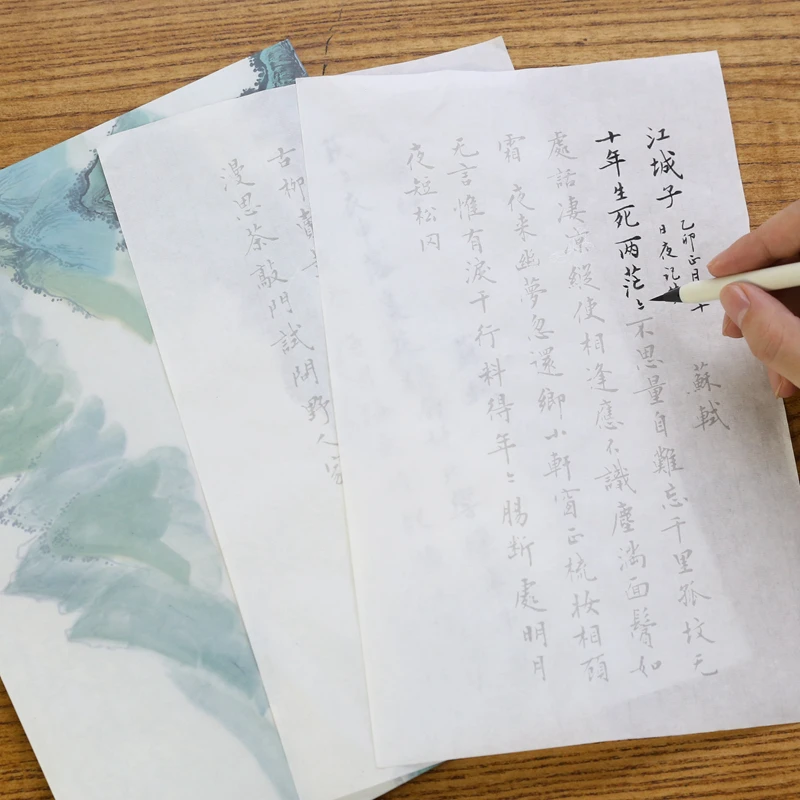 江城子
乙卯正月
十
日夜记
蘇軾
十年生死两茫〻不思量自難忘千里孤坟无
處話凄凉縱使相逢應不識塵滿面鬢如
霜 夜来幽夢忽還鄉小軒窗正梳妝相顧
无言惟有淚千行料得年〻腸断處明月
夜短松冈
古柳賣
漫思茶敲門試問野人家